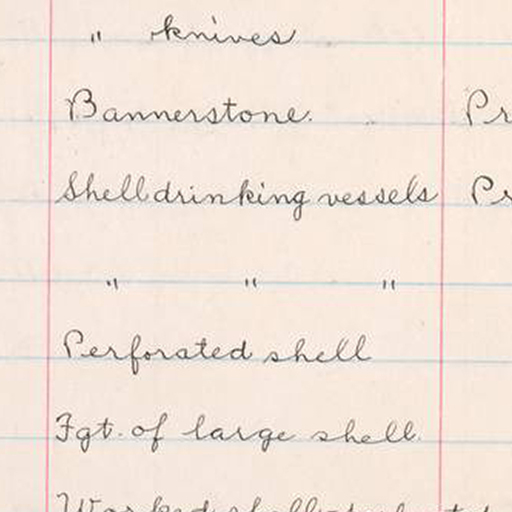 " knives
Bannerstone. Pr
Shell drinking vessels Pr
" " "
Perforated shell
Fgt. of large shell.
Worked shell